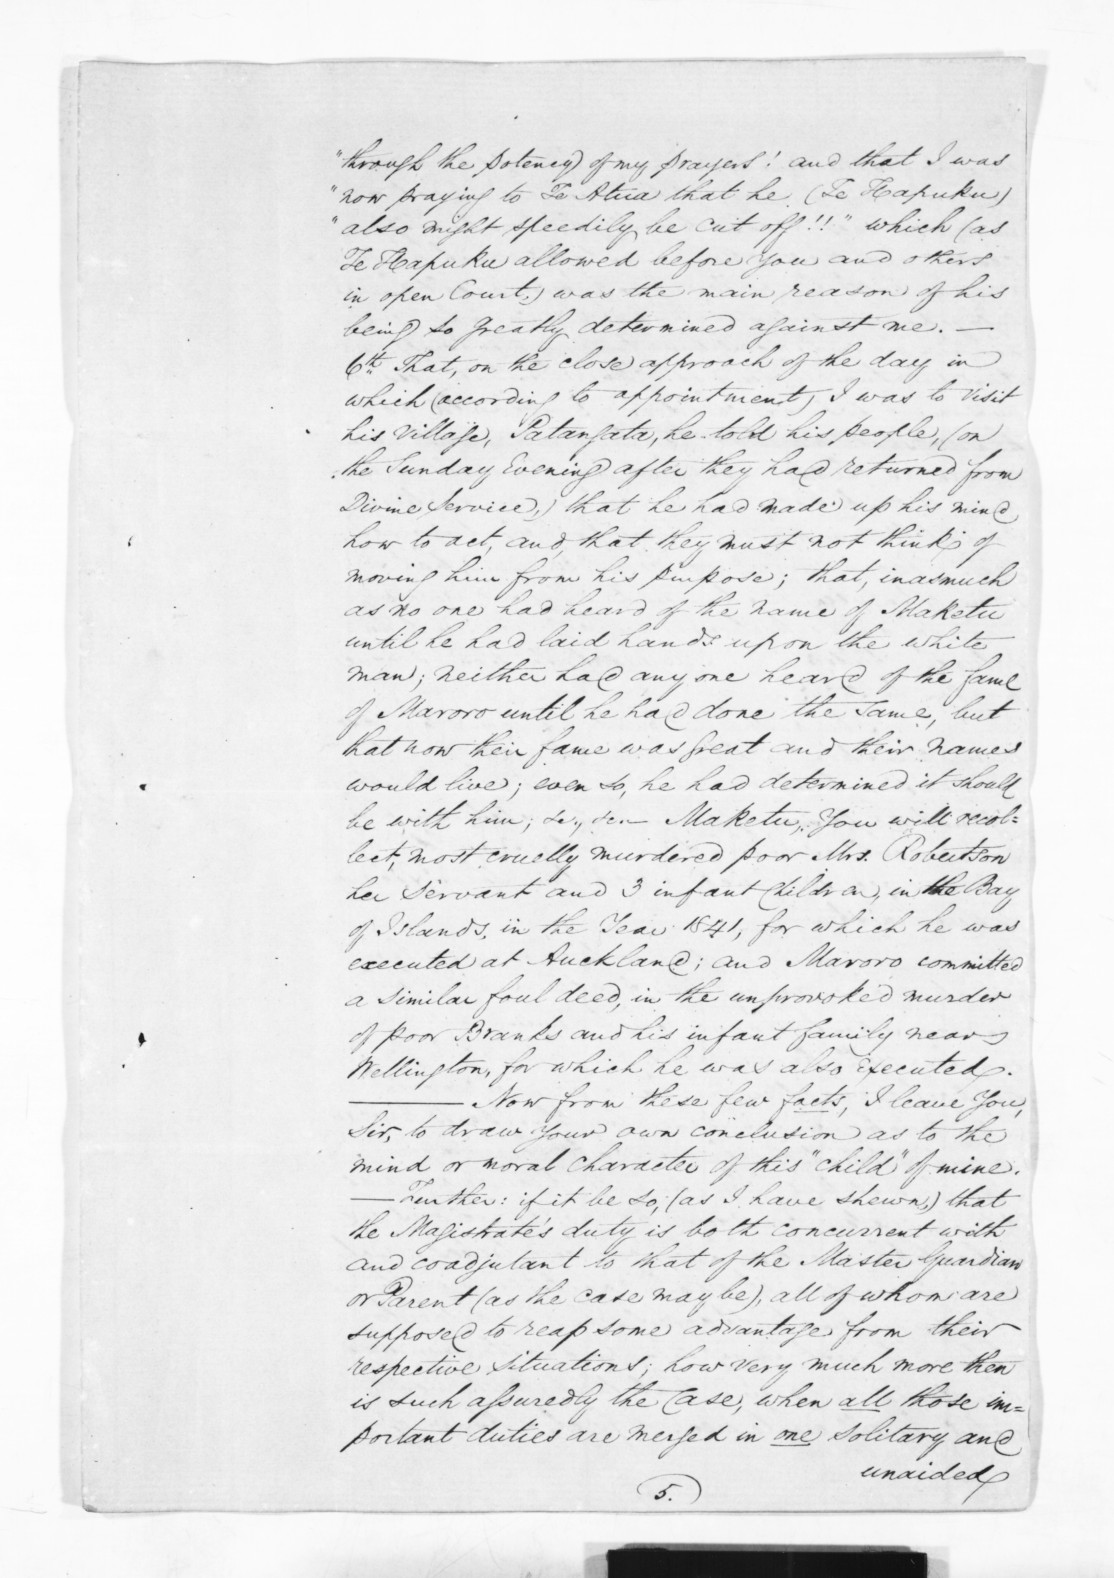 "through the potency) of my prayers! and that I was
"now praying to Te Atua that he (Te Hapuku)
"also might speedily be cut off!!" which (as
Te Hapuku allowed before you and others
in open Court,) was the main reason of his
being so greatly determined against me. —
6th. That, on the close approach of the day in
which (according to appointment) I was to visit
his village, Patangata, he told his people, (on
the Sunday Evening after they had returned from
Divine Service,) that he had made up his mind
how to act, and, that they must not think of
moving him from his purpose; that, inasmuch
as no one had heard of the name of Maketu
until he had laid hands upon the white
man; neither had any one heard of the fame
of Maroro until he had done the same, but
that now their fame was great and their names
would live; even so, he had determined it should
be with him; &c., &c. — Maketu, You will recol=
lect, most cruelly murdered poor Mrs. Robertson
her Servant and 3 infant Children, in the Bay
of Islands, in the Year 1841, for which he was
executed at Auckland; and Maroro committed
a similar foul deed, in the unprovoked murder
of poor Branks and his infant family near
Wellington, for which he was also executed.
——— Now from these few facts, I leave You,
Sir, to draw Your own conclusion as to the
mind or moral character of this "child" of mine.
— Further: if it be so, (as I have shewn,) that
the Magistrate's duty is both concurrent with
and coadjutant to that of the Master Guardian
or Parent (as the case may be), all of whom are
supposed to reap some advantage from their
respective situations; how very much more then
is such assuredly the Case, when all those im=
portant duties are merged in one solitary and
unaided
5.